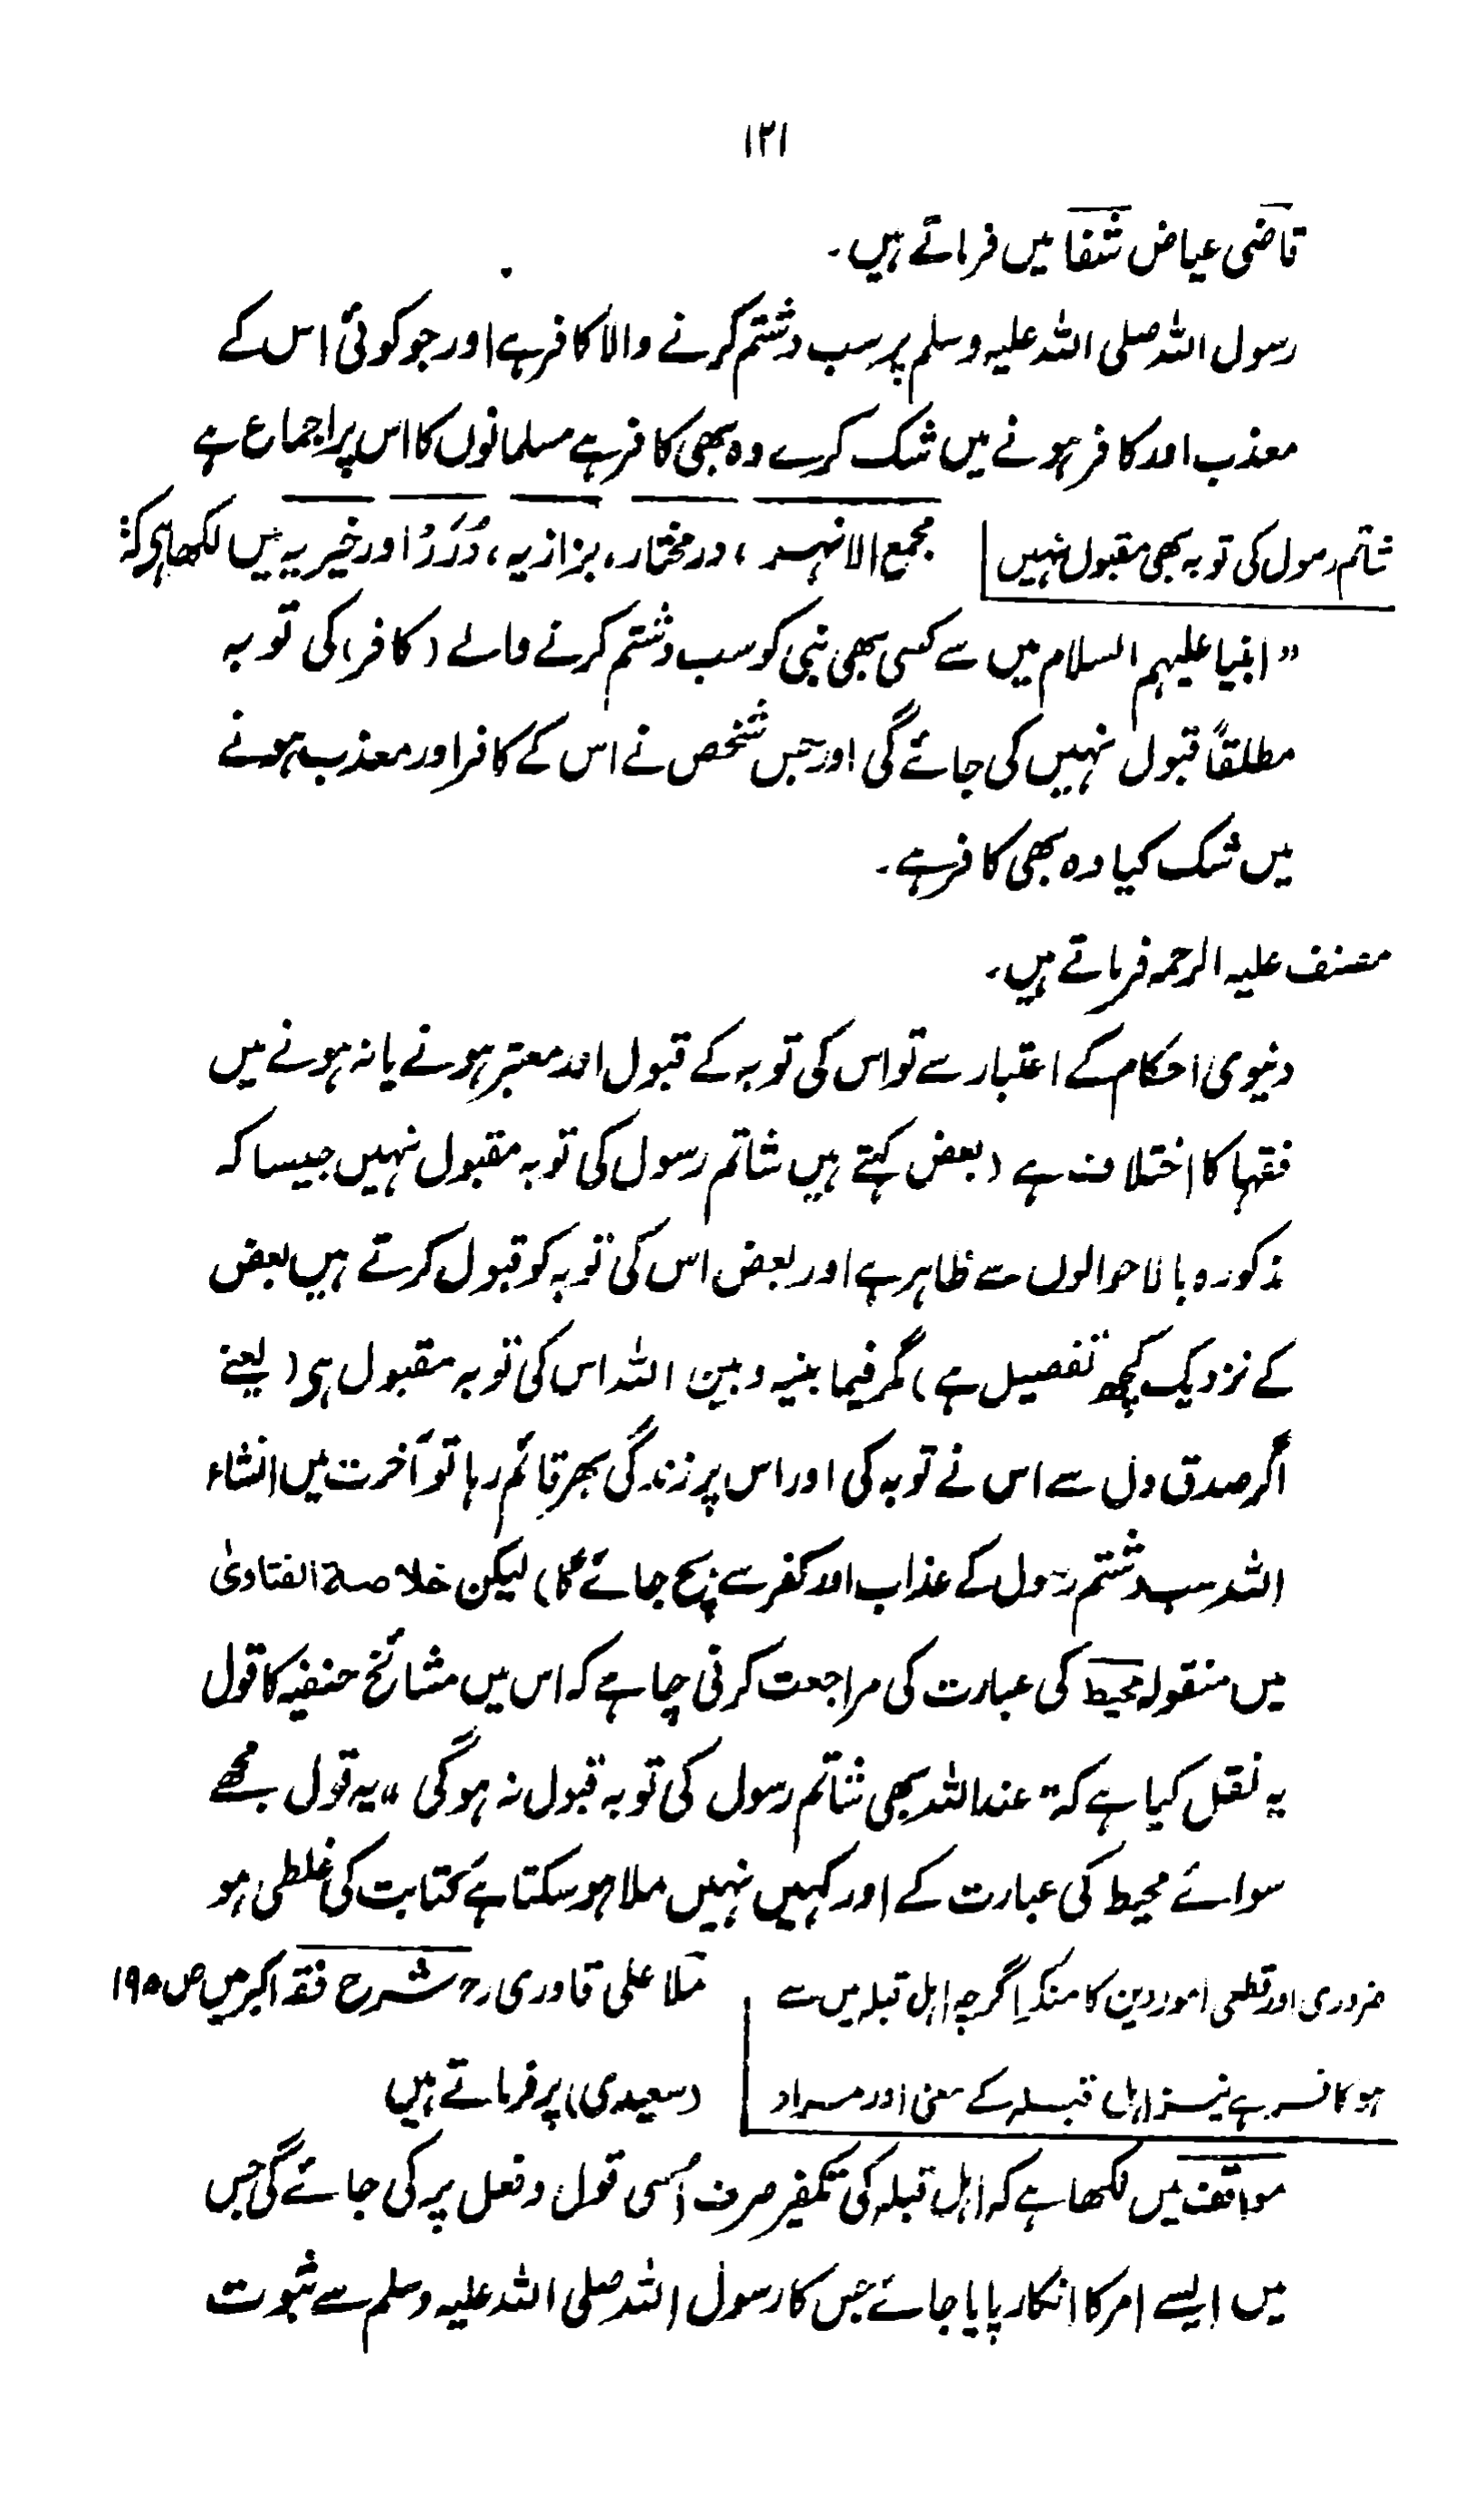 ۱۲۱
قاضی عیاض شفا میں فرماتے ہیں۔
رسول اللہ صلی اللہ علیہ وسلم پر سب وشتم کرنے والا کافر ہے اور جو کوئی اس کے
معذب اور کافر ہونے میں شک کرے وہ بھی کافر ہے مسلمانوں کا اس پر اجماع ہے
شاتم رسول کی توبہ بھی مقبول نہیں
مجمع الانہر، درمختار، بزازیہ، دُرَرْ اور خیریہ میں لکھا ہی کہ:
”انبیا علیہم السلام میں سے کسی بھی نبی کو سب وشتم کرنے والے (کافر) کی توبہ
مطلقاً قبول نہیں کی جائے گی اور جس شخص نے اس کے کافر اور معذب ہونے
میں شک کیا وہ بھی کافر ہے۔
مصنف علیہ الرحمہ فرماتے ہیں۔
دنیوی احکام کے اعتبار سے تو اس کی توبہ کے قبول اور معتبر ہونے یا نہ ہونے میں
فقہا کا اختلاف ہے (بعض کہتے ہیں شاتم رسول کی توبہ مقبول نہیں جیسا کہ
مذکورہ بالا حوالوں سے ظاہر ہے اور بعض اس کی توبہ کو قبول کرتے ہیں بعض
کے نزدیک کچھ تفصیل ہے) مگر فیما بینہ وبین اللہ اس کی توبہ مقبول ہی (یعنے
اگر صدق دل سے اس نے توبہ کی اور اس پر زندگی بھر قائم رہا تو آخرت میں انشاء
اللہ سب وشتم رسول کے عذاب اور کفر سے بچ جائے گا) لیکن خلاصۃ الفتاویٰ
میں منقولہ محیط کی عبارت کی مراجعت کرنی چاہے کہ اس میں مشائخ حنفیہ کا قول
یہ نقل کیا ہے کہ ”عند اللہ بھی شاتم رسول کی توبہ قبول نہ ہوگی“ یہ قول مجھے
سوائے محیط کی عبارت کے اور کہیں نہیں ملا ہو سکتا ہے کتابت کی غلطی ہو
ضروری اور قطعی امور دین کا منکر اگرچہ اہل قبلہ میں سے
ہو کافر ہے نیز اہل قبلہ کے معنی اور مراد
ملا علی قاوری رح شرح فقہ اکبر میں ص ۱۹۵
(سعیدی) پر فرماتے ہیں
مواقف میں لکھا ہے کہ اہل قبلہ کی تکفیر صرف اُسی قول وفعل پر کی جائے گی جس
میں ایسے امر کا انکار پایا جائے جس کا رسول اللہ صلی اللہ علیہ وسلم سے ثبوت